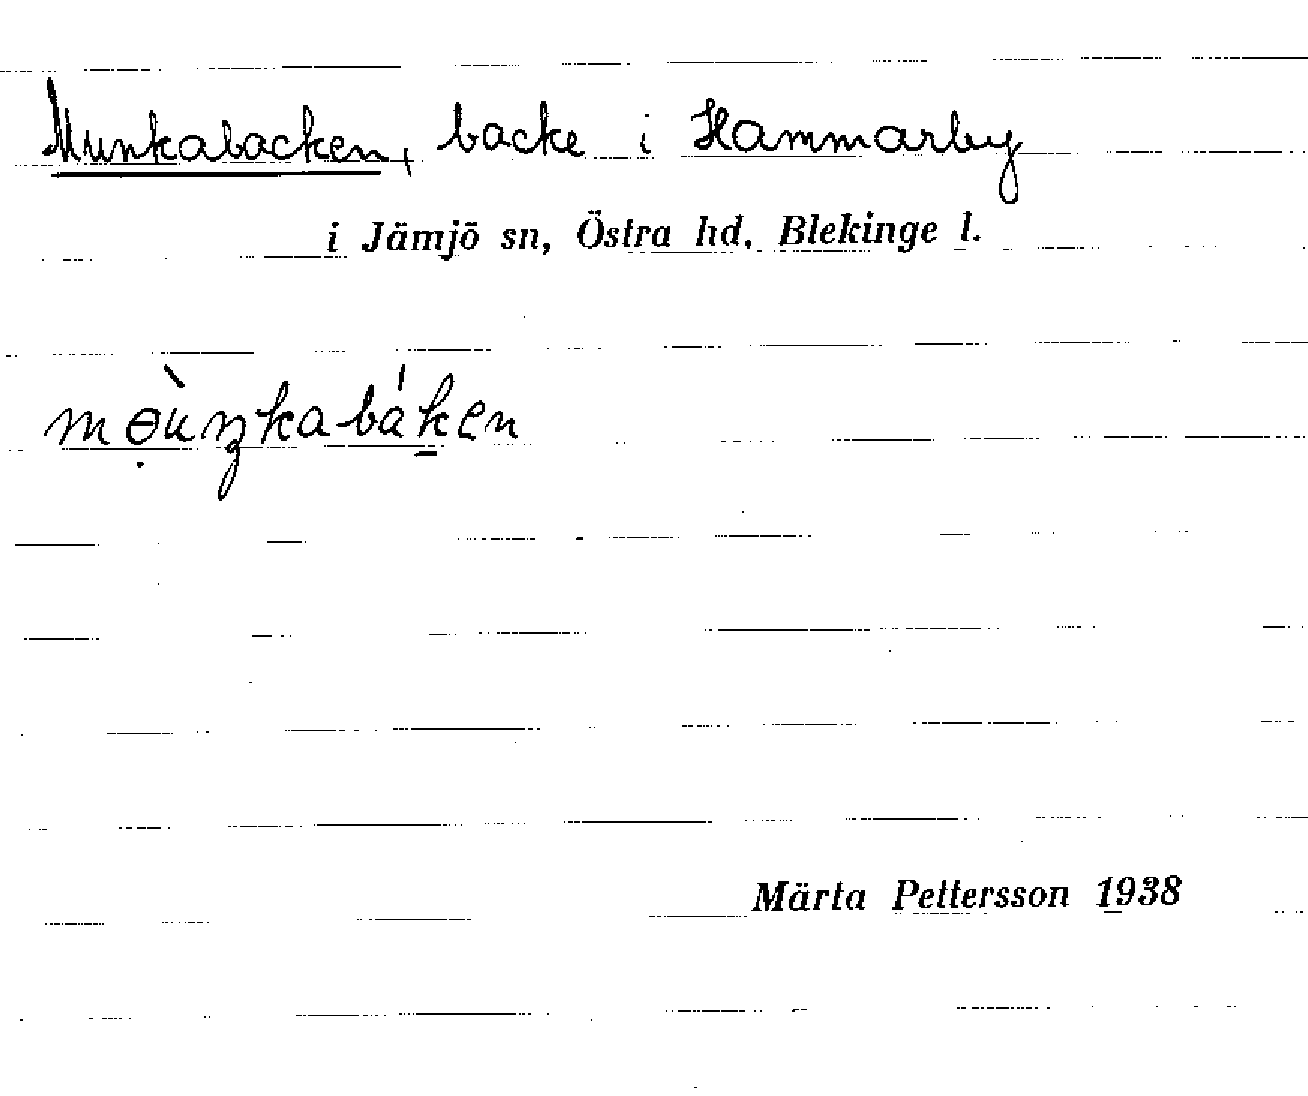 Munkabacken, backe i Hammarby
i Jämjö sn, Östra hd, Blekinge l.
mɵ̣ùŋkabák̠en
Märta Pettersson 1938